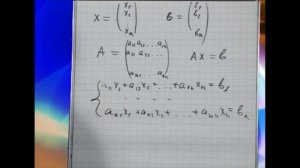 X = (x₁ x₂ ⋮ xₙ) b = (b₁ b₂ ⋮ bₙ)
A = (a₁₁ a₁₂ ... a₁ₙ
a₂₁ a₂₂ ...
aₙ₁ ... aₙₙ) AX = b
{ a₁₁x₁ + a₁₂x₂ + ... + a₁ₙxₙ = b₁
. . . . .
aₙ₁x₁ + aₙ₂x₂ + ... + aₙₙxₙ = bₙ